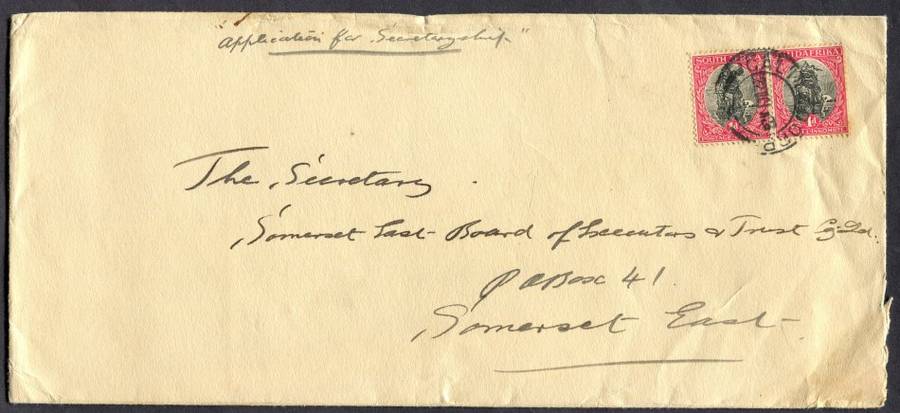 "Application for Secretaryship"
SOUTH
SUIDAFRIKA
CAL
1d
The Secretary
Somerset East Board of Executors & Trust Co Ltd.
P O Box 41
Somerset East